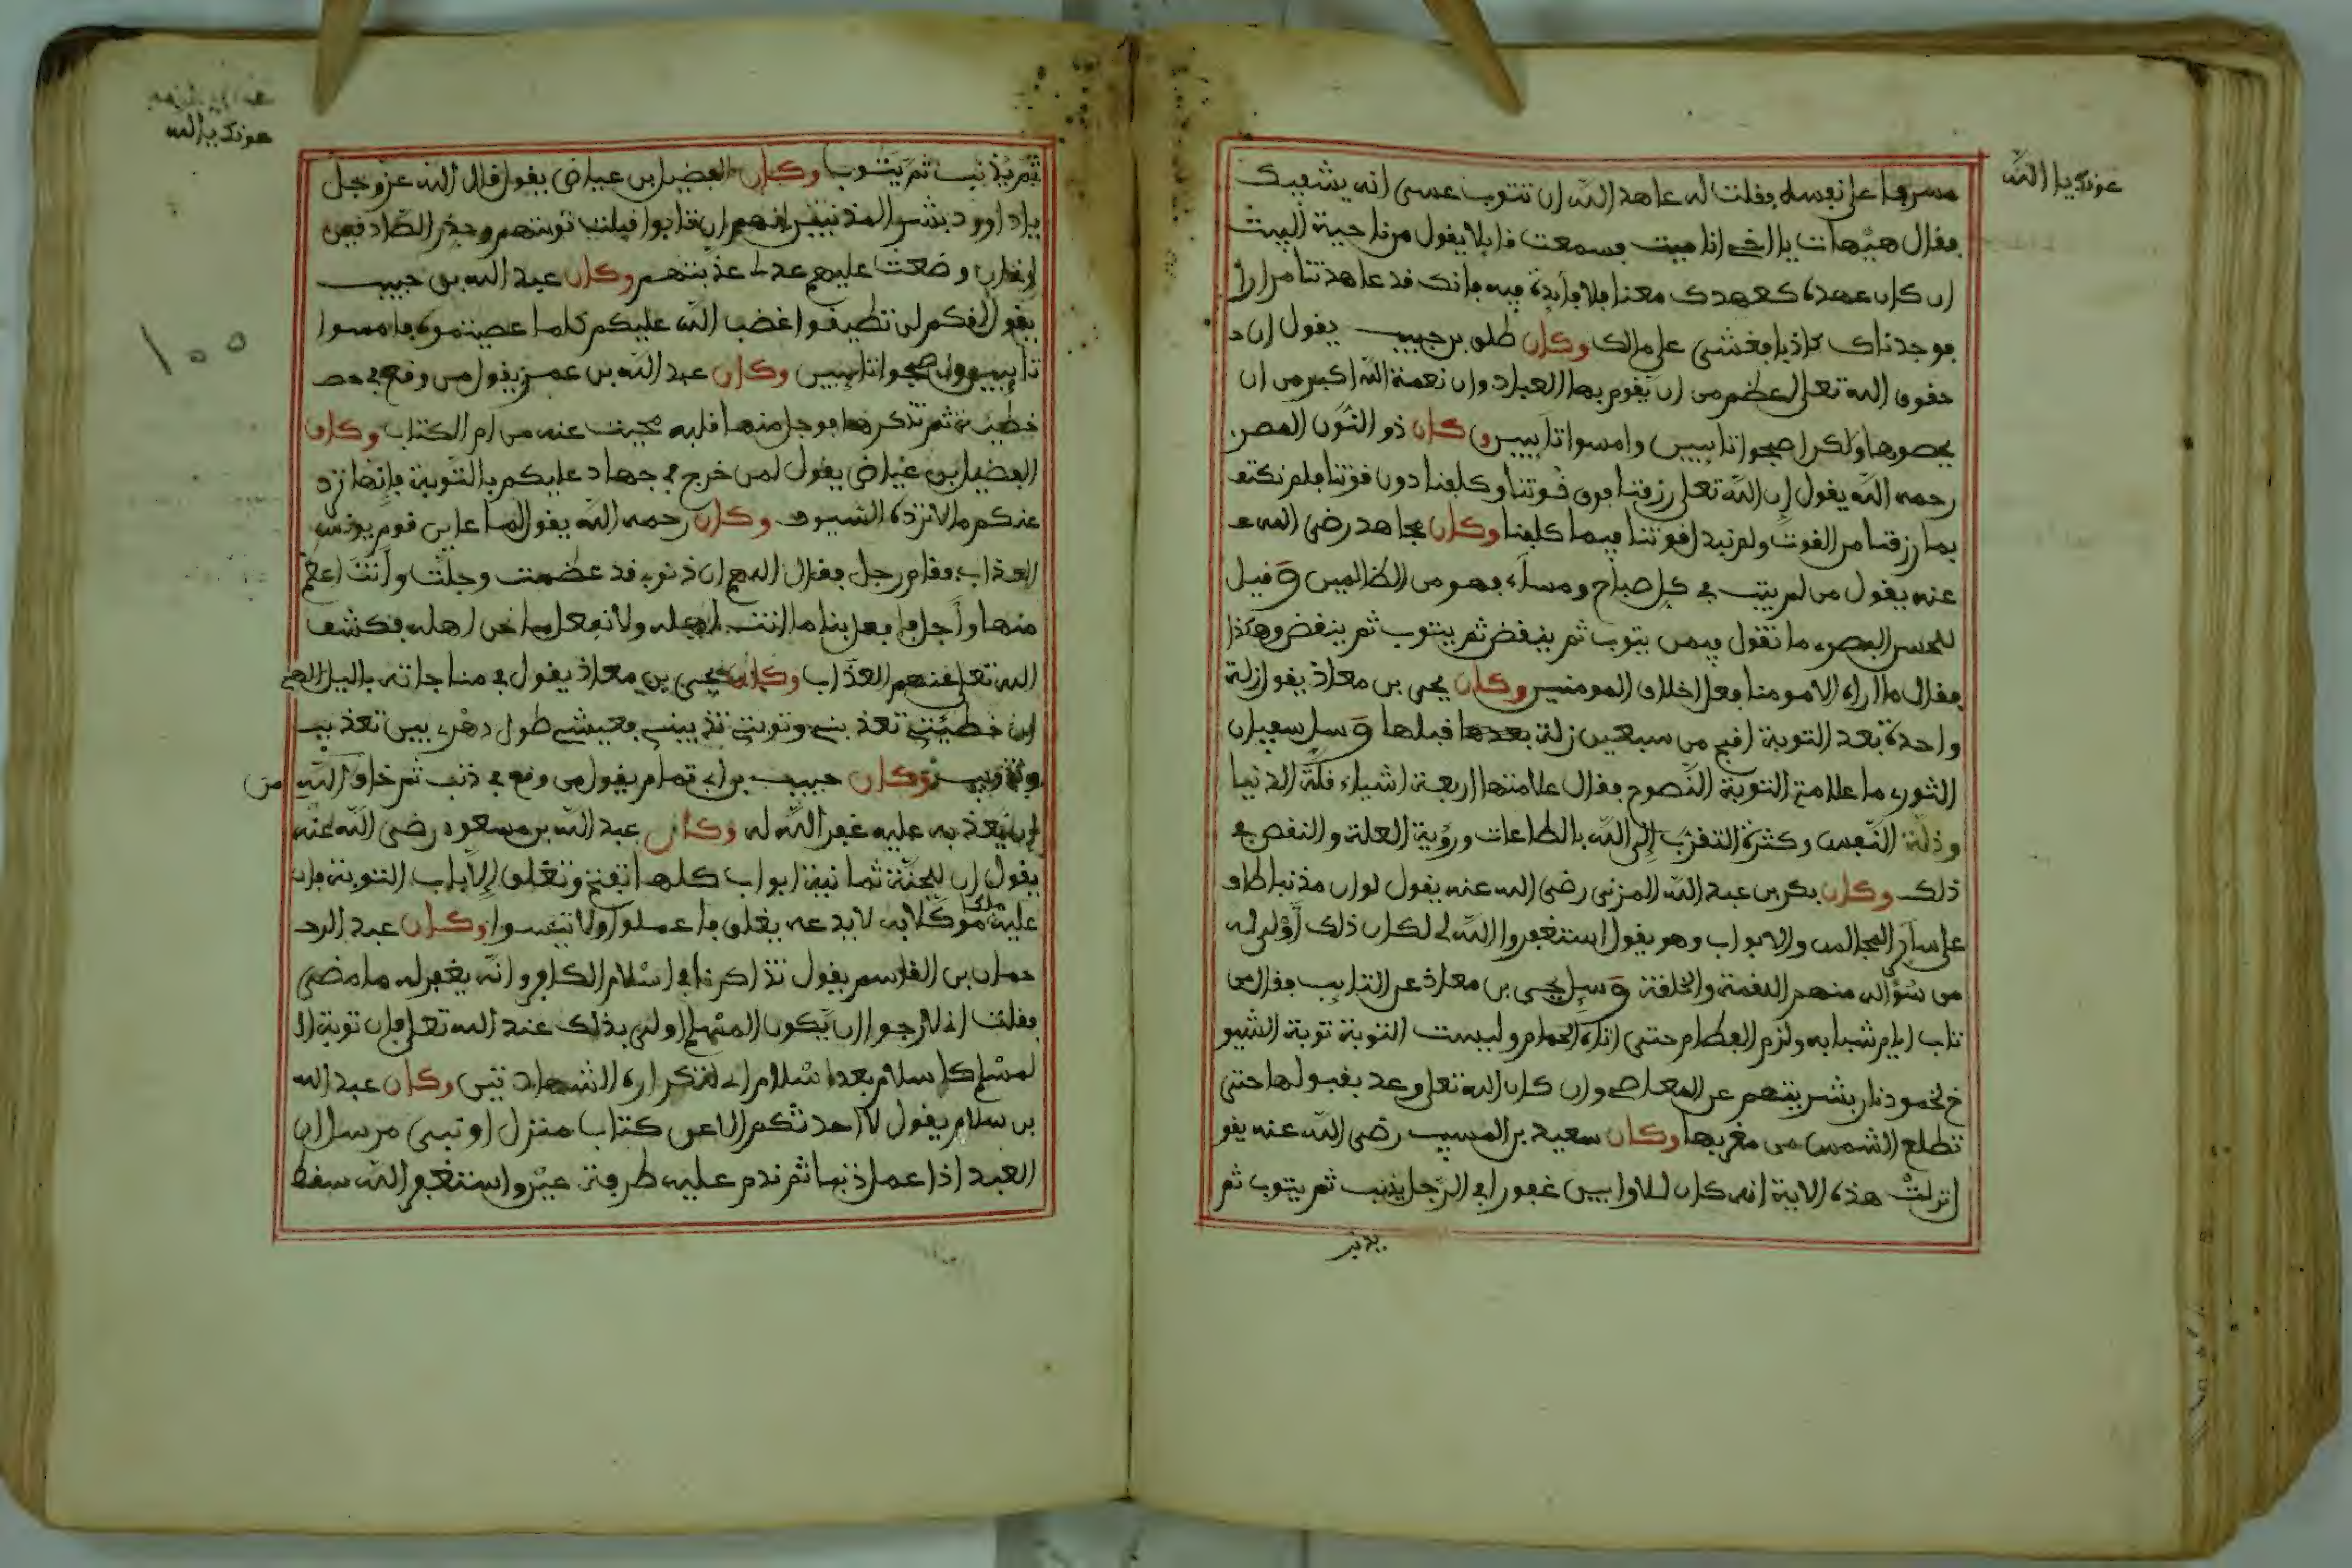 عونك يا الله
مسرفا على نفسه فقلت له عاهد الله ان تتوب عسى انه يشفيك
فقال هيهات يا اخي انا ميت فسمعت قايلا يقول من ناحية البيت
ان كان عهدك كعهدك معنا فلا فايدة فيه فانك قد عاهدتنا مرارا
فوجدناك كاذبا فغشي على مالك وكان طلق بن حبيب يقول ان
حقوق الله تعلى اعظم من ان يقوم بها العباد وان نعمة الله اكبر من ان
يحصوها ولكن اصبحوا تايبين وامسوا تايبين وكان ذو النون المصري
رحمه الله يقول ان الله تعلى رزقنا فوق قوتنا وكلفنا دون قوتنا فلم نكتف
بما رزقنا من القوت ولم نبد قوتنا فيما كلفنا وكان مجاهد رضي الله
عنه يقول من لم يتب في كل صباح ومساء فهو من الظالمين وقيل
للحسن البصري ما تقول فيمن يتوب ثم ينقض ثم يتوب ثم ينقض وهكذا
فقال ما اراه الا مومنا فعل اخلاق المومنين وكان يحيى بن معاذ يقول زلة
واحدة بعد التوبة اقبح من سبعين زلة قبلها وسيل سفيان
الثوري ما علامة التوبة النصوح فقال علامتها اربعة اشياء قلة الدنيا
وذلة النفس وكثرة التقرب الى الله بالطاعات ورؤية العلة والنقص في
ذلك وكان بكر بن عبد الله المزني رضي الله عنه يقول لو ان مذنبا طاف
على ساير المجالس والابواب وهو يقول استغفروا الله لي لكان ذلك اولى له
من سؤاله منهم اللقمة والخلقة وسيل يحيى بن معاذ عن التايب فقال من
تاب ايام شبابه ولزم الفطام حتى اتاه الحمام وليست التوبة توبة الشيو
خ لخمود نار بشريتهم عن المعاصي وان كان الله تعلى وعد بقبولها حتى
تطلع الشمس من مغربها وكان سعيد بن المسيب رضي الله عنه يقو
انزلت هذه الاية انه كان للاوابين غفورا في الرجل يذنب ثم يتوب ثم
يذنب
عونك يا الله
ثم يذنب ثم يتوب وكان الفضيل بن عياض يقول قال الله عز وجل
يا داوود بشر المذنبين انهم ان تابوا قبلت توبتهم وحذر الصادقين
وضعت عليهم عدلي عذبتهم وكان عبد الله بن حبيب
يقول انكم لن تطيقوا غضب الله عليكم كلما عصيتموه فامسوا
تايبين واصبحوا تايبين وكان عبد الله بن عمر يقول من وقع في
خطيئة ثم تذكرها فوجل منها قلبه محيت عنه من ام الكتاب وكان
الفضيل بن عياض يقول لمن خرج في جهاد عليكم بالتوبة فانها ترد
عنكم ما لا ترده السيوف وكان رحمه الله يقول لما عاين قوم يونس
العذاب فقام رجل فقال اللهم ان ذنوبي قد عظمت وجلت وانت اعظم
منها واجل فافعل بنا ما انت اهله ولا تفعل بنا ما نحن اهله فكشف
الله تعلى عنهم العذاب وكان يحيى بن معاذ يقول في مناجاته بالليل الهي
ان خطيئتي تعذبني وتوبتي تذيبني فعيشي طول دهري بين تعذيب
وتذويب وكان حبيب بن ابي تمام يقول من وقع في ذنب ثم خاف الله من
ان يعذبه عليه غفر الله له وكان عبد الله بن مسعود رضي الله عنه
يقول ان للجنة ثمانية ابواب كلها تفتح وتغلق الا باب التوبة فان
عليه ملكا موكلا به لا يدعه يغلق فاعملوا ولا تيئسوا وكان عبد الر
حمان بن القاسم يقول تذاكرنا في اسلام الكافر وانه يغفر له ما مضى
فقلت اني لارجوا ان يكون المسلم اولى بذلك عند الله تعلى فان توبة ا
لمسلم كاسلام بعد اسلام اي لتكراره الشهادتين وكان عبد الله
بن سلام يقول لا احدثكم الا عن كتاب منزل او نبي مرسل ان
العبد اذا عمل ذنبا ثم ندم عليه طرفة عين واستغفر الله سقط
١٠٠